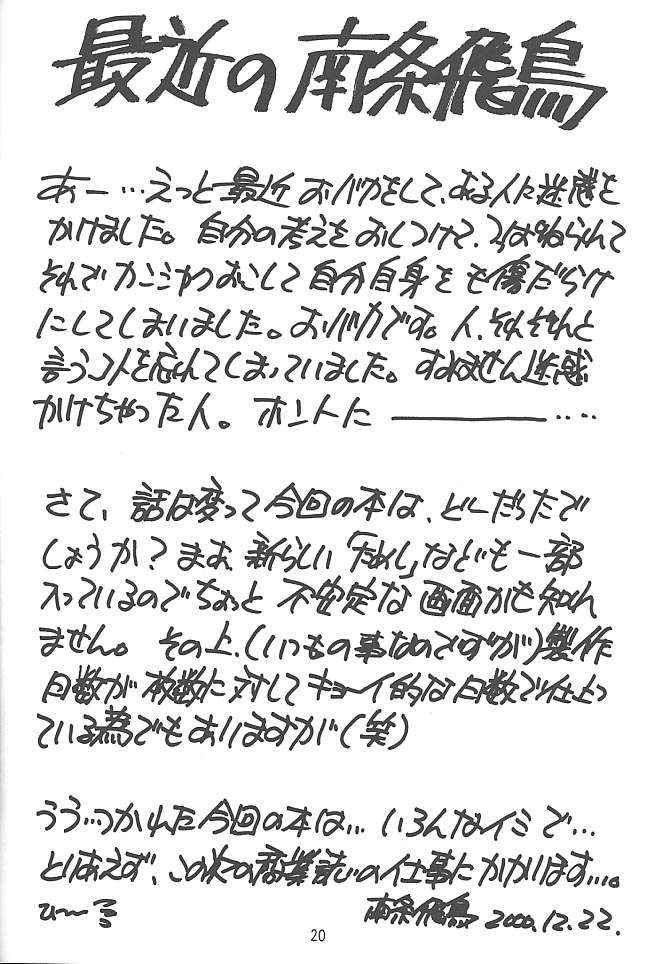 最近の南条飛鳥
あー…えっと最近おバカをして、ある人に迷惑を
かけました。自分の考えをおしつけて、つっぱねられて
それでカンシャクおこして自分自身をも傷だらけ
にしてしまいました。おバカです。人、それぞれと
言うコトを忘れてしまっていました。すみません迷惑
かけちゃった人。ホントに――――‥‥
さて、話は変って今回の本は、どーだったで
しょうか?まぁ新らしい「ためし」なども一部
入っているのでちょっと不安定な画面かも知れ
ません。その上、(いつもの事なのですが)製作
日数が枚数に対してキョーイ的な日数で仕上っ
ている為でもありますが(笑)
うう…つかれた今回の本は…いろんなイミで…
とりあえず、この次の商業誌の仕事にかかります…。
ひ〜
南条飛鳥 2000.12.22.
20